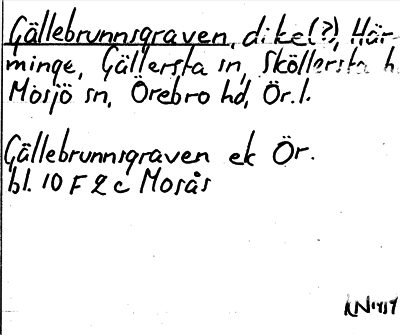 Gällebrunnsgraven, dike(?), Här-
minge, Gällersta sn, Sköllersta h.
Mosjö sn, Örebro hd, Ör.l.
Gällebrunnsgraven ek Ör.
bl. 10 F 2 c Mosås